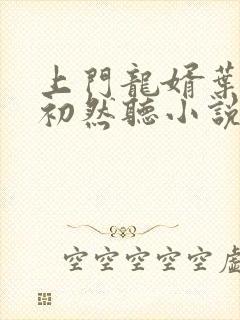 上門龍婿葉
初然聽小說
空空空空空虛